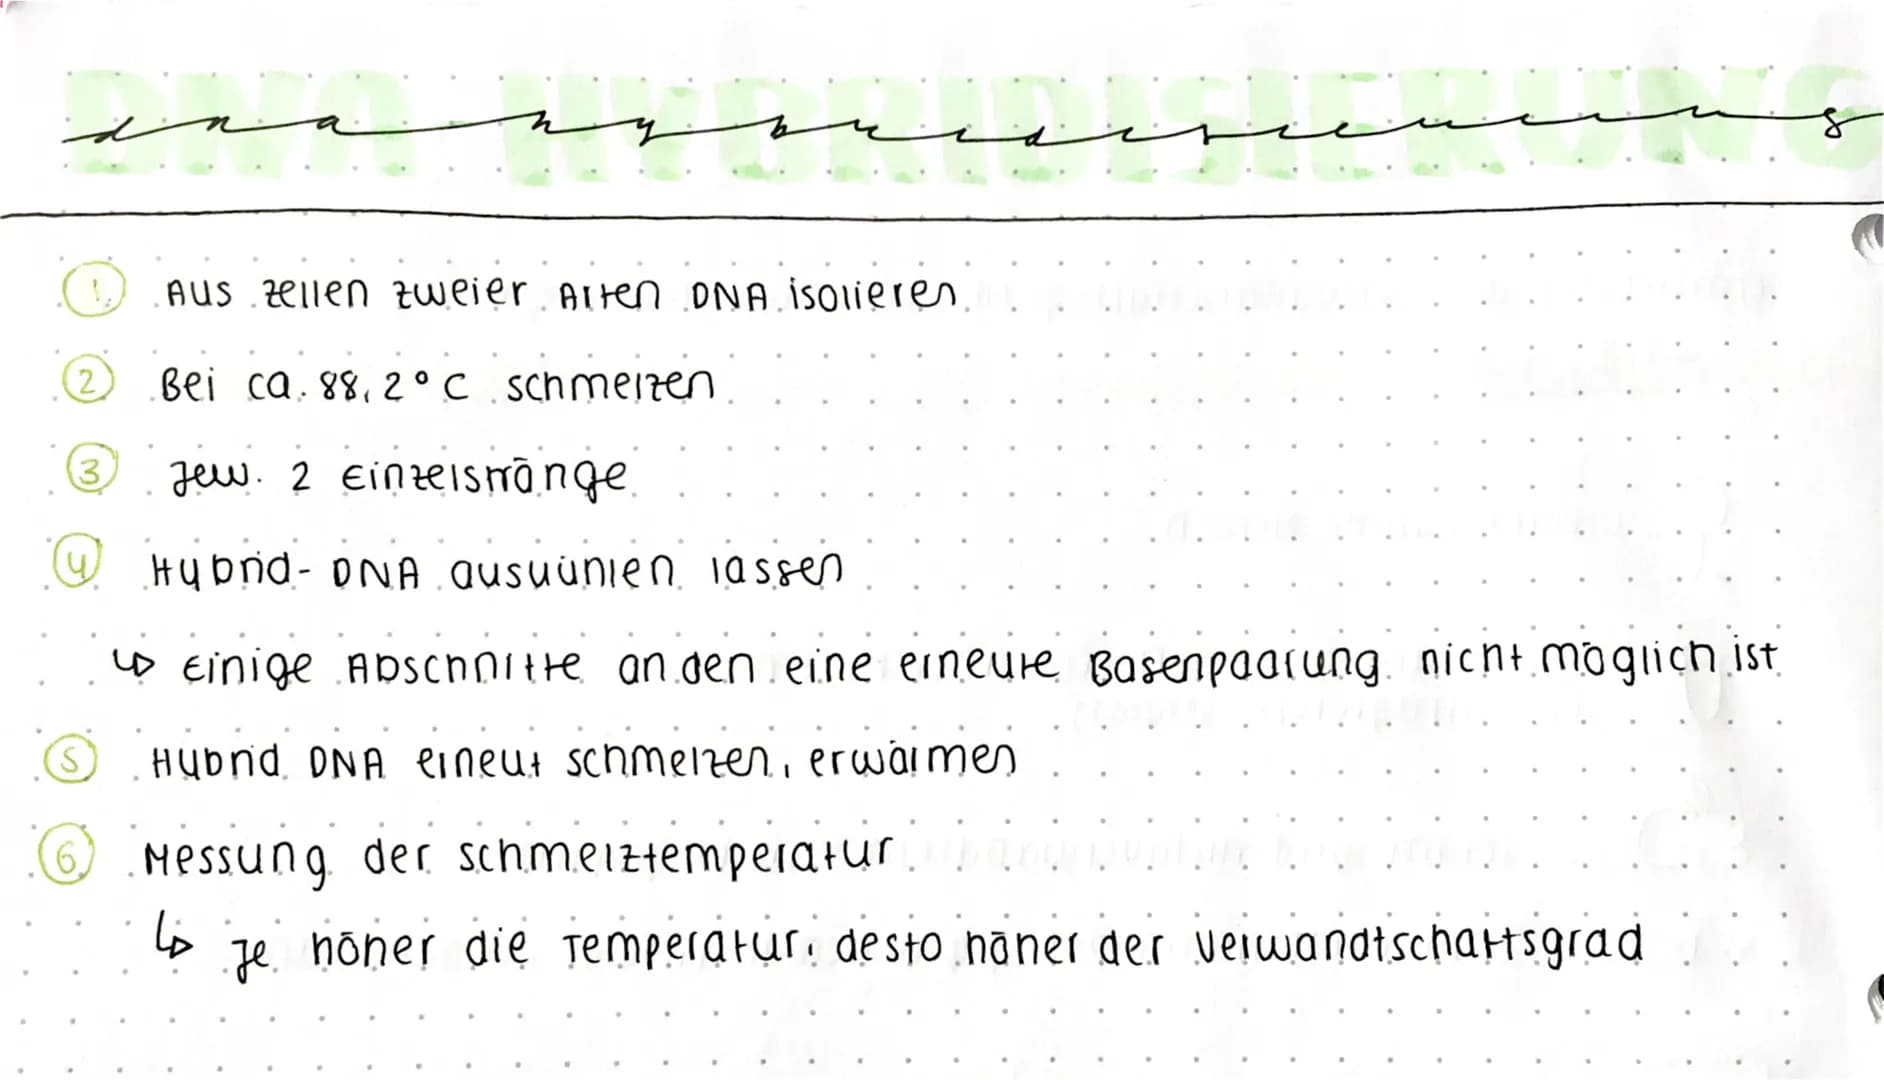 DNA-HYBRIDISIERUNG
dna-hybridisierung
1. Aus Zellen zweier Arten DNA isolieren
2 Bei ca. 88,2°C schmelzen
3 Jew. 2 Einzelstränge
4 Hybrid-DNA auskühlen lassen
↳ Einige Abschnitte an den eine erneute Basenpaarung nicht möglich ist
5 Hybrid DNA erneut schmelzen, erwärmen
6 Messung der Schmelztemperatur
↳ Je höher die Temperatur, desto höher der Verwandtschaftsgrad